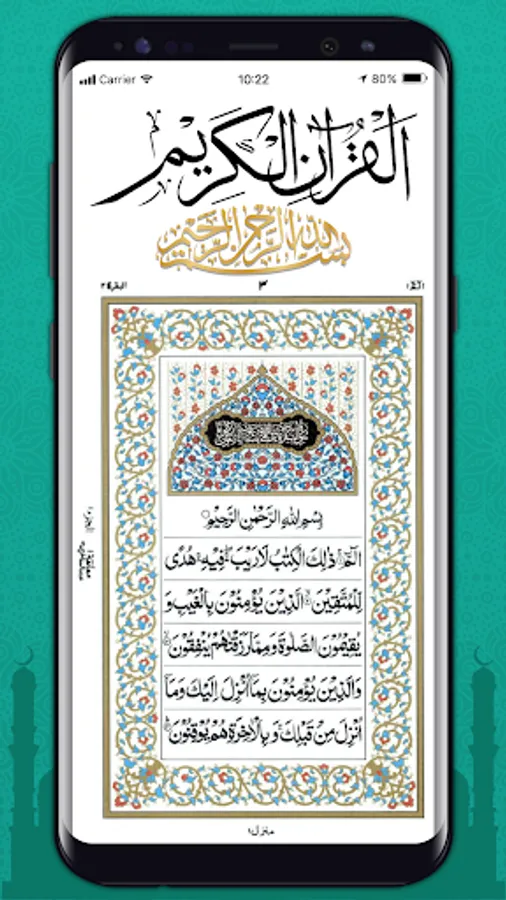 Carrier 10:22 80%
اَلْقُرْآنُ الْكَرِيْم
بسم الله الرحمن الرحيم
الٓمّٓ ١ ٣ البقرة ٢
بِسْمِ اللهِ الرَّحْمٰنِ الرَّحِيْمِ
الٓمّٓ ذٰلِكَ الْكِتٰبُ لَا رَيْبَ فِيْهِ هُدًى
لِّلْمُتَّقِيْنَ الَّذِيْنَ يُؤْمِنُوْنَ بِالْغَيْبِ وَ
يُقِيْمُوْنَ الصَّلٰوةَ وَمِمَّا رَزَقْنٰهُمْ يُنْفِقُوْنَ
وَالَّذِيْنَ يُؤْمِنُوْنَ بِمَا اُنْزِلَ اِلَيْكَ وَمَا
اُنْزِلَ مِنْ قَبْلِكَ وَ بِالْاٰخِرَةِ هُمْ يُوْقِنُوْنَ
منزل ١